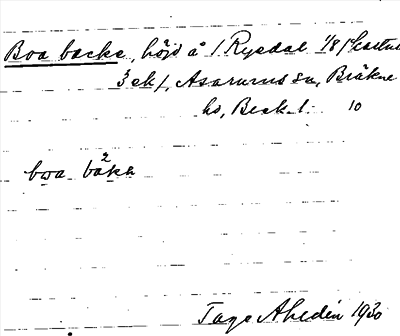 Boa backe, höjd å 1 Ryedal 1/8 (kartan
3 ek), Asarums sn, Bräkne
hd, Blek. l. 10
boa ba²kə
Tage Ahldén 1930